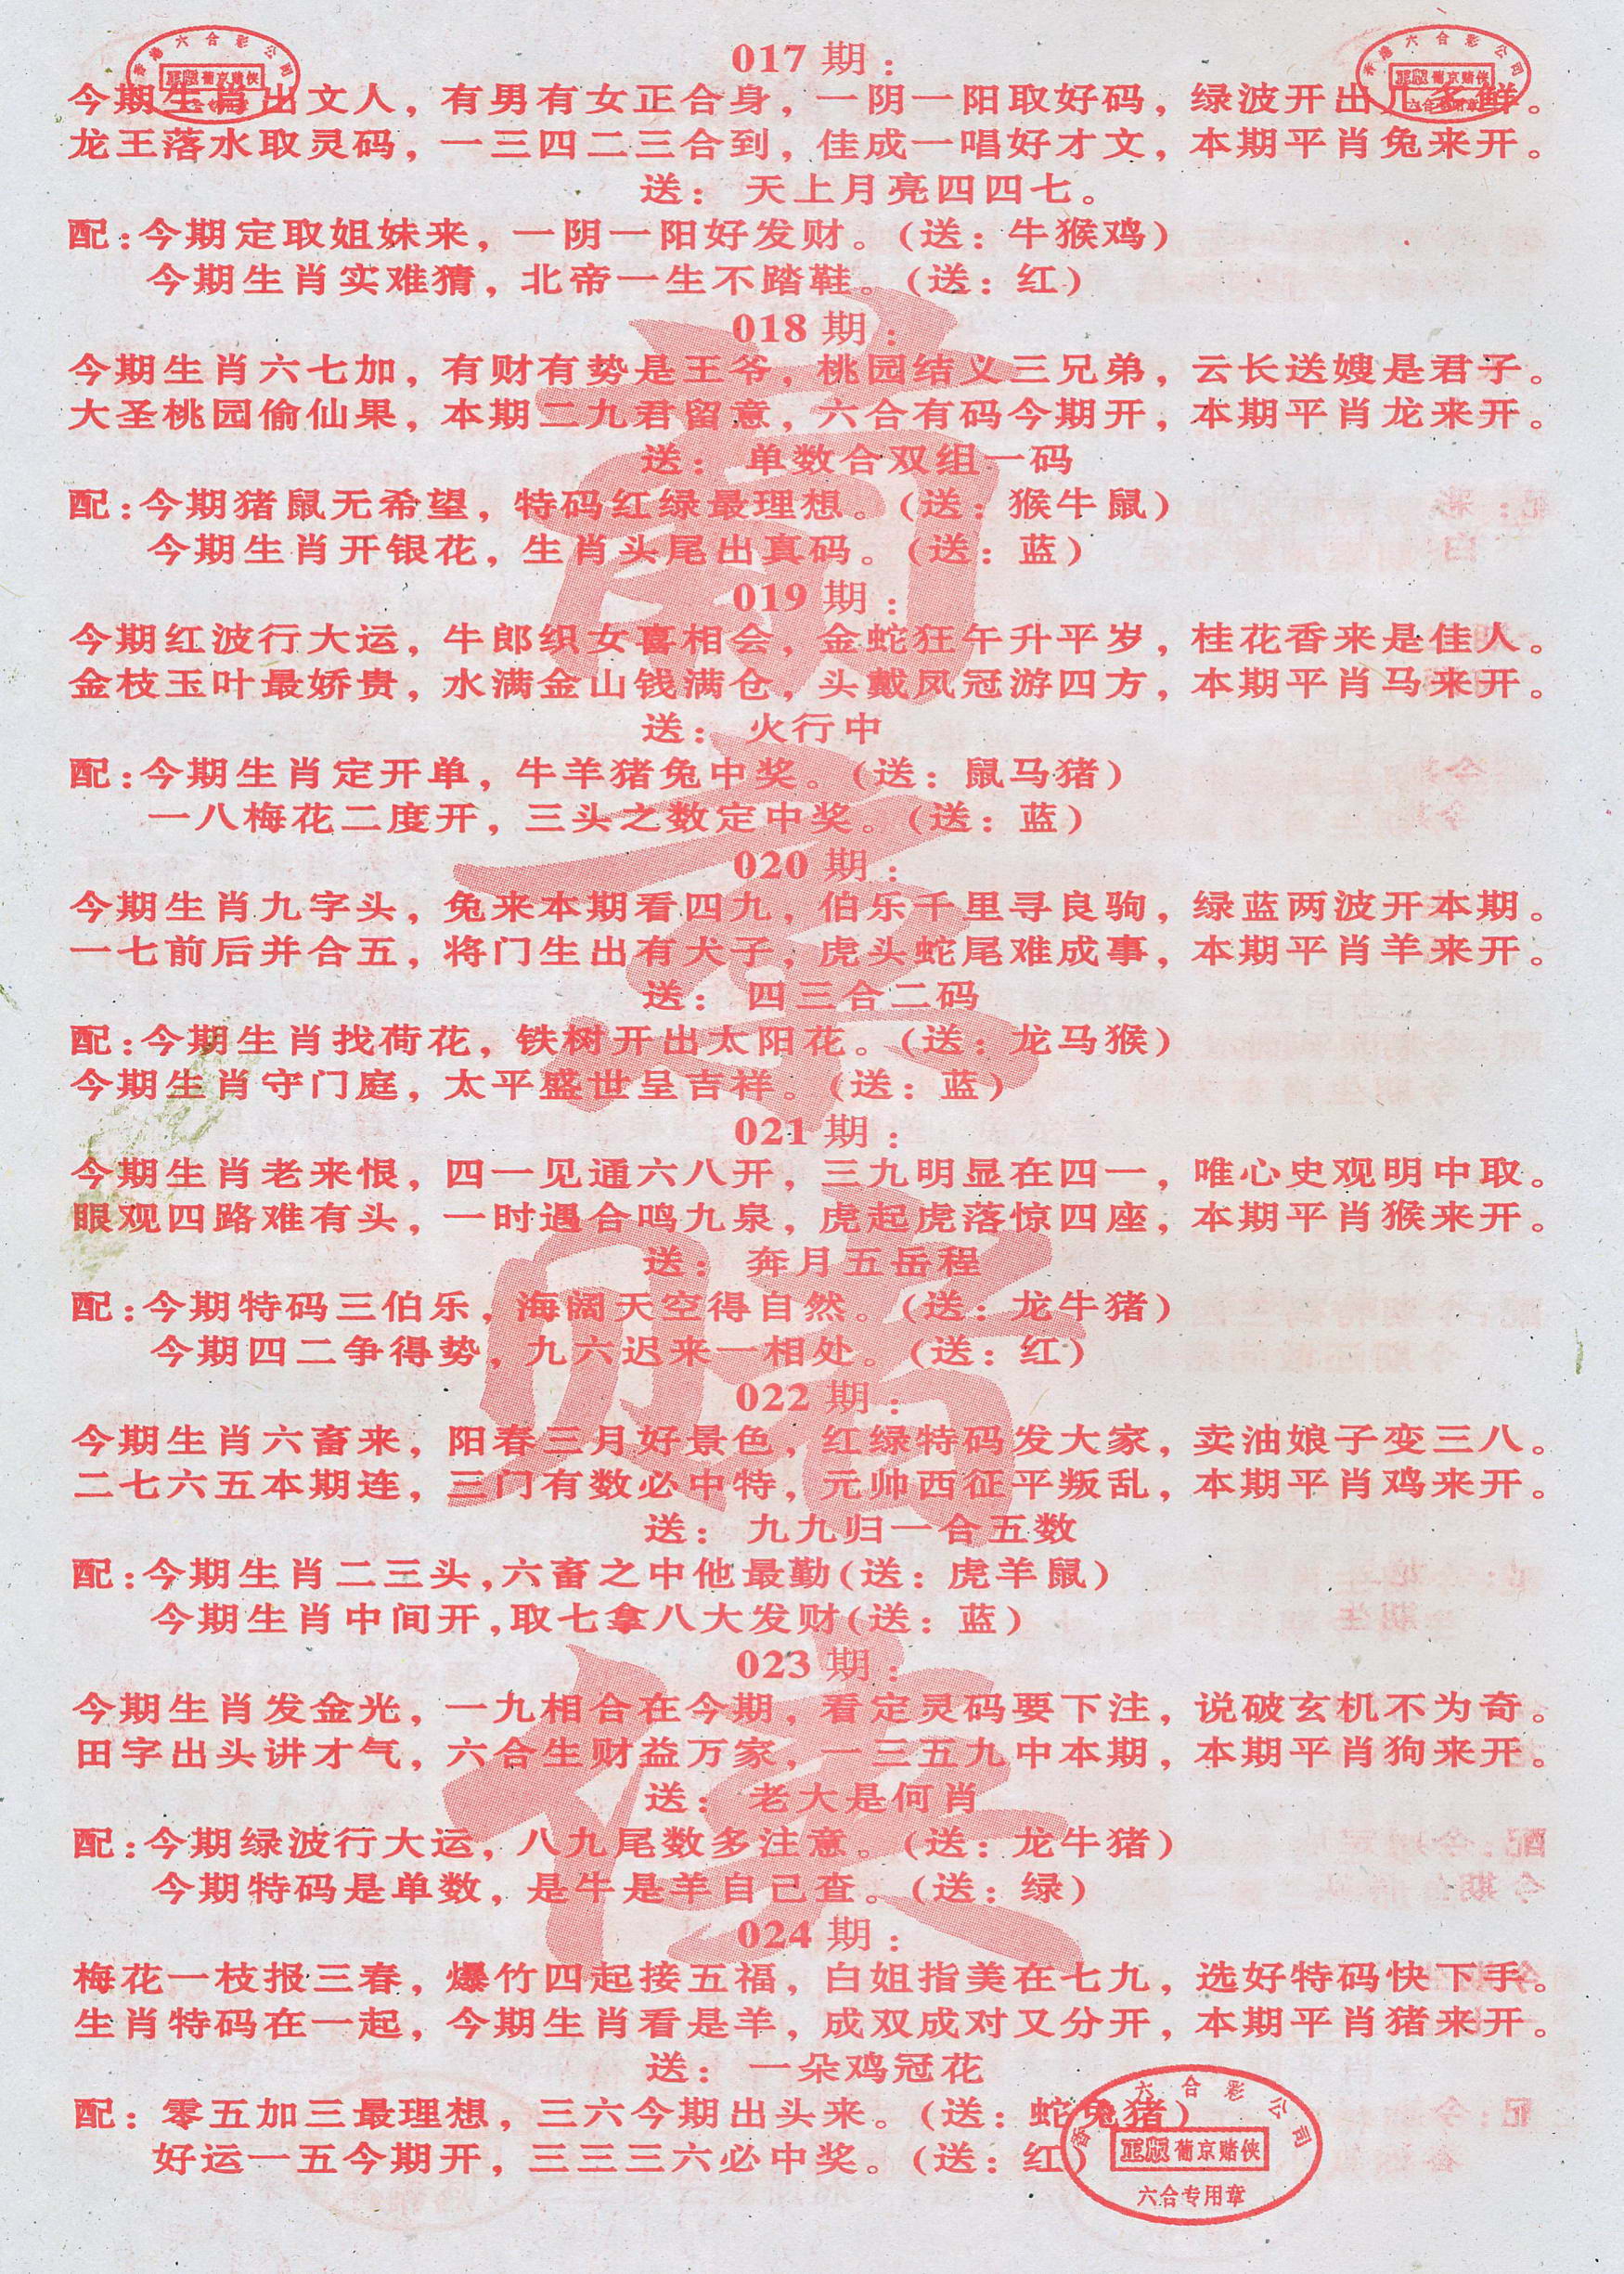 香港六合彩公司
正版 葡京赌侠
香港六合彩公司
正版 葡京赌侠
六合专用章
017期：
今期生肖出文人，有男有女正合身，一阴一阳取好码，绿波开出几多鲜。
龙王落水取灵码，一三四二三合到，佳成一唱好才文，本期平肖兔来开。
送：天上月亮四四七。
配：今期定取姐妹来，一阴一阳好发财。（送：牛猴鸡）
今期生肖实难猜，北帝一生不踏鞋。（送：红）
018期：
今期生肖六七加，有财有势是王爷，桃园结义三兄弟，云长送嫂是君子。
大圣桃园偷仙果，本期二九君留意，六合有码今期开，本期平肖龙来开。
送：单数合双组一码
配：今期猪鼠无希望，特码红绿最理想。（送：猴牛鼠）
今期生肖开银花，生肖头尾出真码。（送：蓝）
019期：
今期红波行大运，牛郎织女喜相会，金蛇狂午升平岁，桂花香来是佳人。
金枝玉叶最娇贵，水满金山钱满仓，头戴凤冠游四方，本期平肖马来开。
送：火行中
配：今期生肖定开单，牛羊猪兔中奖。（送：鼠马猪）
一八梅花二度开，三头之数定中奖。（送：蓝）
020期：
今期生肖九字头，兔来本期看四九，伯乐千里寻良驹，绿蓝两波开本期。
一七前后并合五，将门生出有犬子，虎头蛇尾难成事，本期平肖羊来开。
送：四三合二码
配：今期生肖找荷花，铁树开出太阳花。（送：龙马猴）
今期生肖守门庭，太平盛世呈吉祥。（送：蓝）
021期：
今期生肖老来恨，四一见通六八开，三九明显在四一，唯心史观明中取。
眼观四路难有头，一时遇合鸣九泉，虎起虎落惊四座，本期平肖猴来开。
送：奔月五岳程
配：今期特码三伯乐，海阔天空得自然。（送：龙牛猪）
今期四二争得势，九六迟来一相处。（送：红）
022期：
今期生肖六畜来，阳春三月好景色，红绿特码发大家，卖油娘子变三八。
二七六五本期连，三门有数必中特，元帅西征平叛乱，本期平肖鸡来开。
送：九九归一合五数
配：今期生肖二三头,六畜之中他最勤(送：虎羊鼠)
今期生肖中间开,取七拿八大发财(送：蓝)
023期：
今期生肖发金光，一九相合在今期，看定灵码要下注，说破玄机不为奇。
田字出头讲才气，六合生财益万家，一三五九中本期，本期平肖狗来开。
送：老大是何肖
配：今期绿波行大运，八九尾数多注意。（送：龙牛猪）
今期特码是单数，是牛是羊自己查。（送：绿）
024期：
梅花一枝报三春，爆竹四起接五福，白姐指美在七九，选好特码快下手。
生肖特码在一起，今期生肖看是羊，成双成对又分开，本期平肖猪来开。
送：一朵鸡冠花
配：零五加三最理想，三六今期出头来。（送：蛇兔猪）
好运一五今期开，三三三六必中奖。（送：红）
香港六合彩公司
正版 葡京赌侠
六合专用章
葡京赌侠